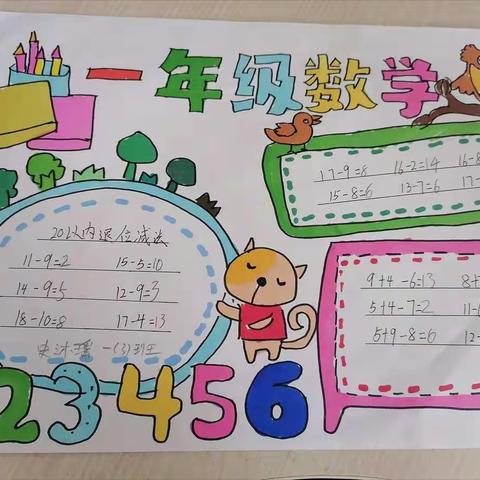 一年级数学
20以内退位减法
11-9=2 15-5=10
14-9=5 12-9=3
18-10=8 17-4=13
一(3)班
17-9=8 16-2=14 16-8
15-8=6 13-7=6 17-
9+4-6=13 8+
5+4-7=2 11-
5+9-8=6 12-
23456